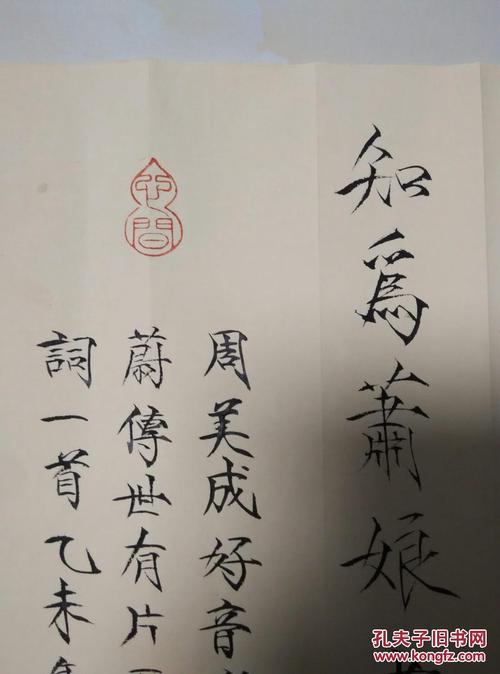 知為蕭娘
周美成好音
蔚傳世有片
詞一首乙未
孔夫子旧书网
www.kongfz.com